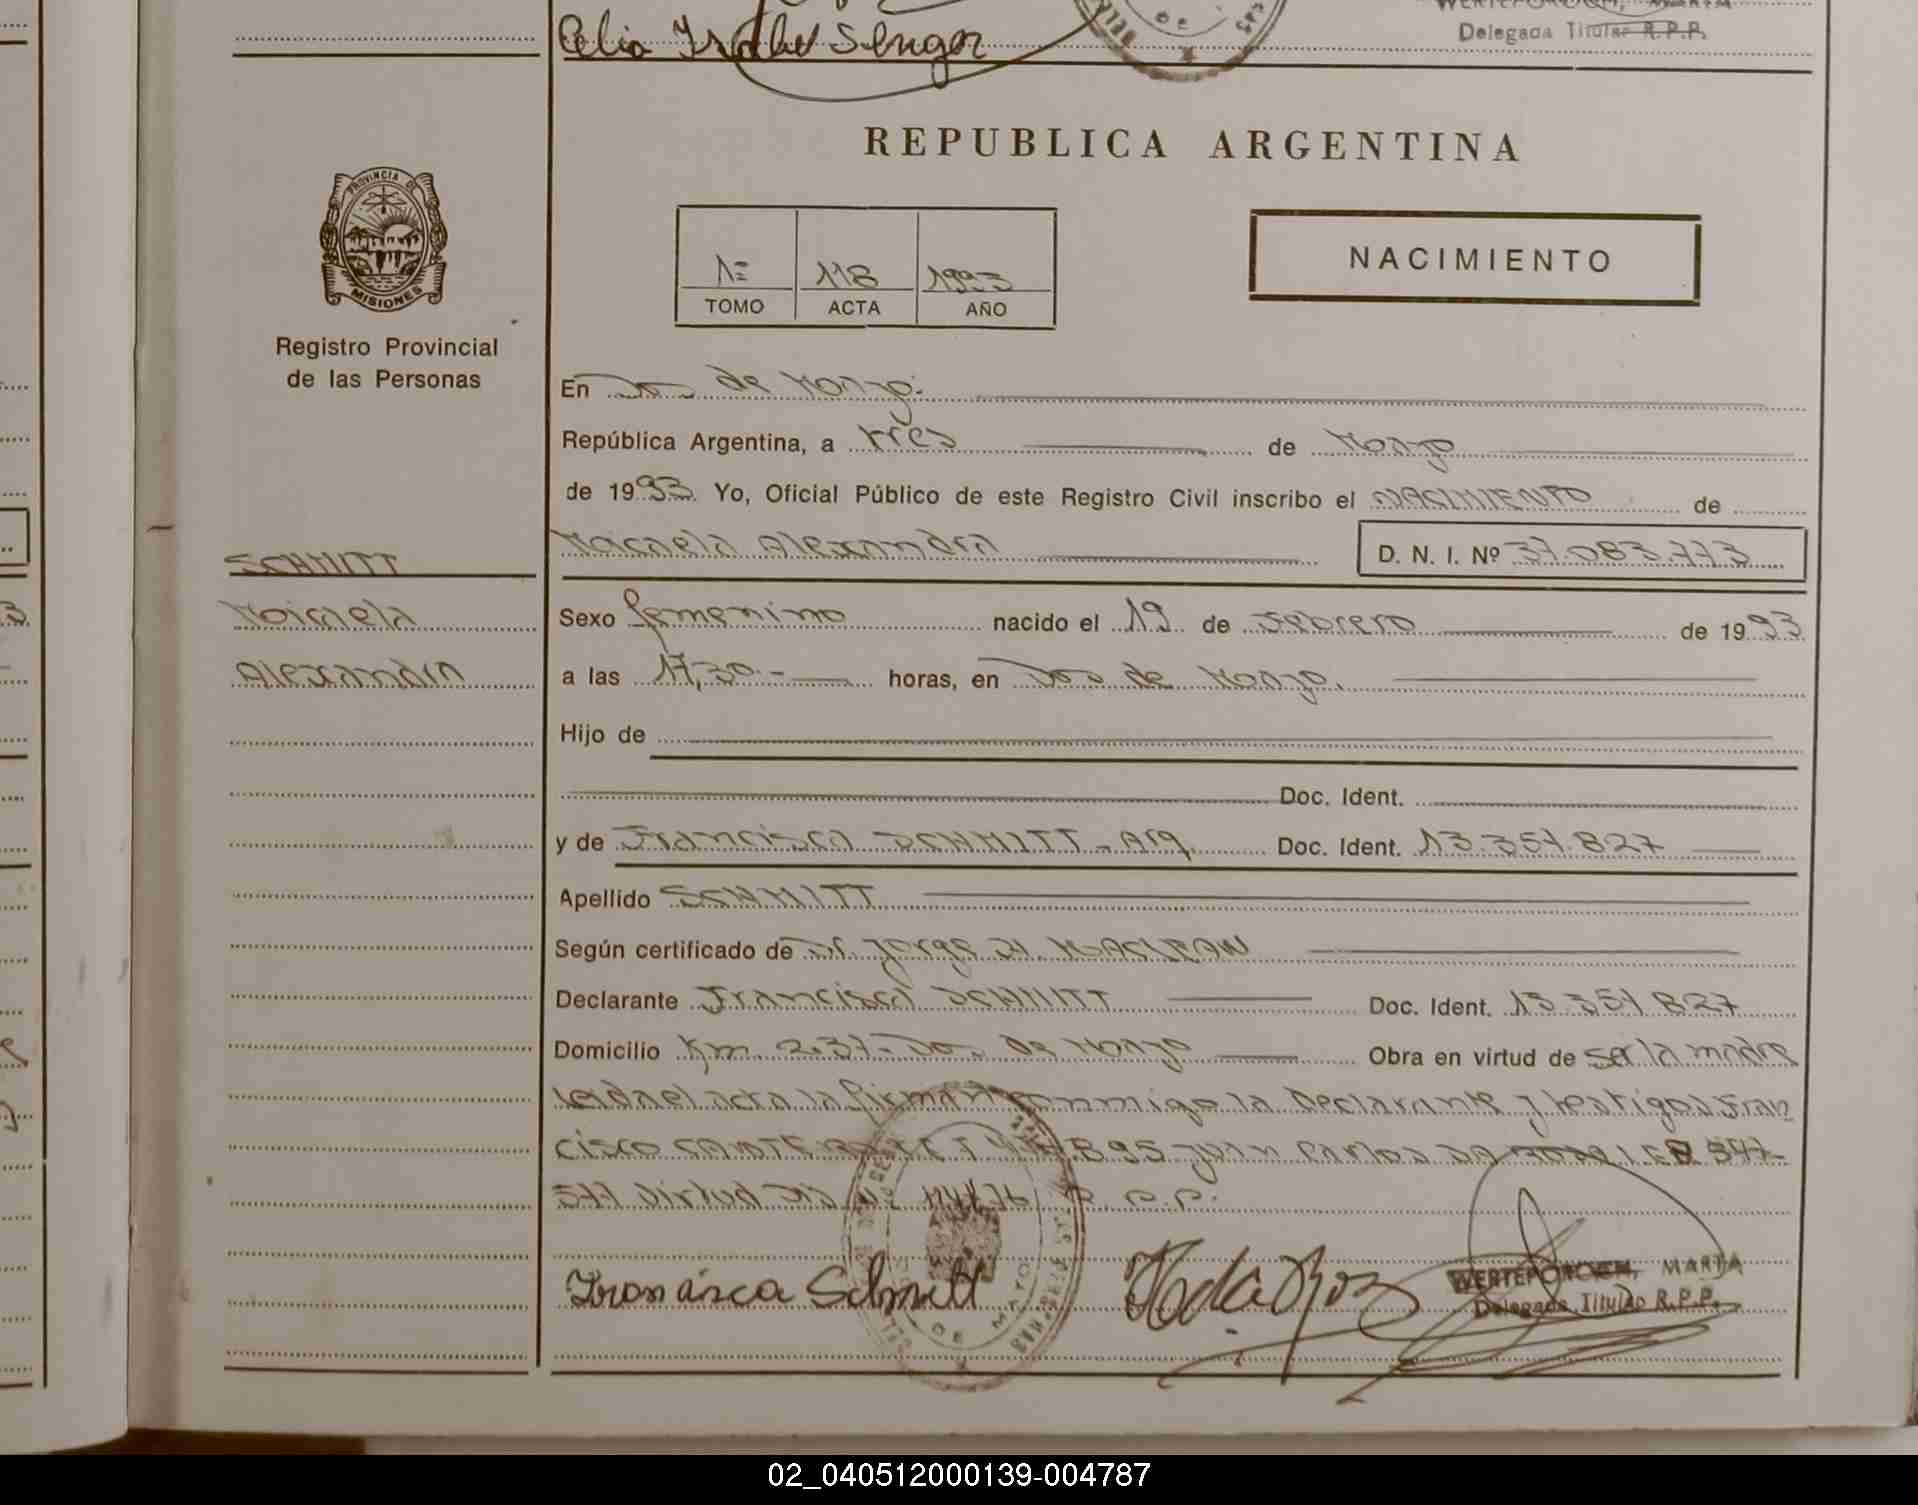 Celia Isabel Senger
Delegada Titular R.P.P.
REPUBLICA ARGENTINA
PROVINCIA DE
MISIONES
Registro Provincial
de las Personas
1= 118 1993
TOMO ACTA AÑO
NACIMIENTO
En Dos de Mayo.
República Argentina, a tres de Marzo
de 1993. Yo, Oficial Público de este Registro Civil inscribo el NACIMIENTO de
Micaela Alexandra D. N. I. Nº 37.083.773
SCHMITT
Micaela
Alexandra
Sexo femenino nacido el 19 de Febrero de 1993
a las 17,30.- horas, en Dos de Mayo.
Hijo de
Doc. Ident.
y de Francisca SCHMITT - Arg. Doc. Ident. 13.357.827
Apellido SCHMITT
Según certificado de Dr. Jorge H. MACLEAN
Declarante Francisca SCHMITT Doc. Ident. 13.357.827
Domicilio Km. 237- Dos de Mayo Obra en virtud de ser la madre
leida el acta la firman conmigo la Declarante y testigos Fran
cisco 895 Juan Carlos DA 547-
577 virtud R.P.P.
Francisca Schmitt
WERTEPOROCH, MARTA
Delegada Titular R.P.P.
DE MAYO
02_040512000139-004787